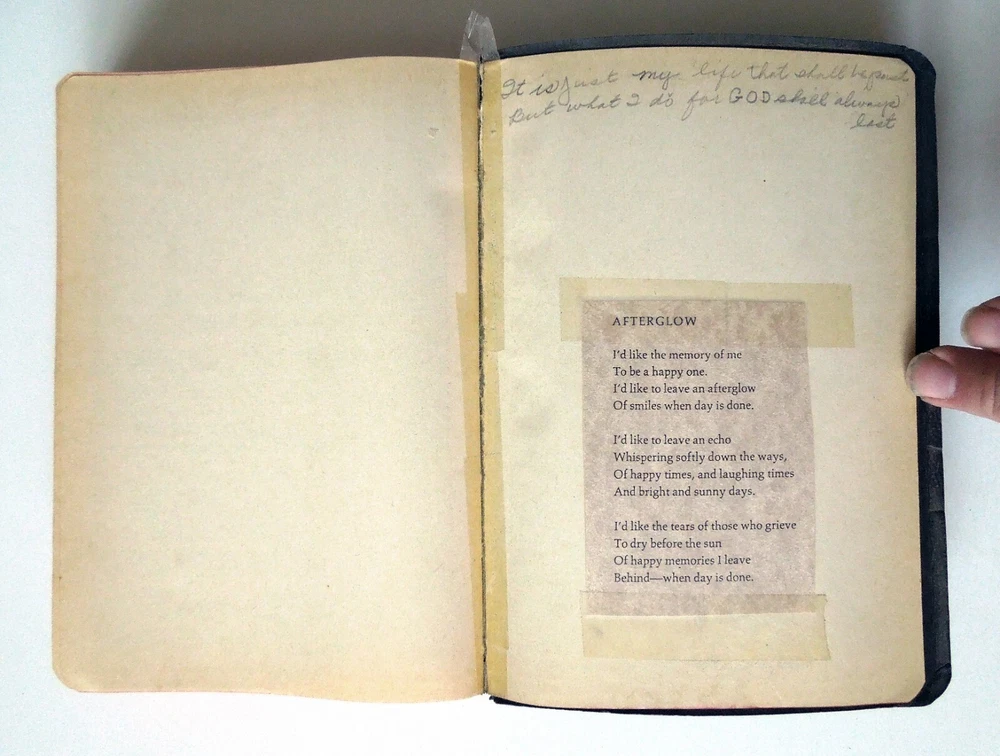 It is just my life that shall be past
But what I do for GOD shall always
last
AFTERGLOW
I'd like the memory of me
To be a happy one.
I'd like to leave an afterglow
Of smiles when day is done.
I'd like to leave an echo
Whispering softly down the ways,
Of happy times, and laughing times
And bright and sunny days.
I'd like the tears of those who grieve
To dry before the sun
Of happy memories I leave
Behind—when day is done.